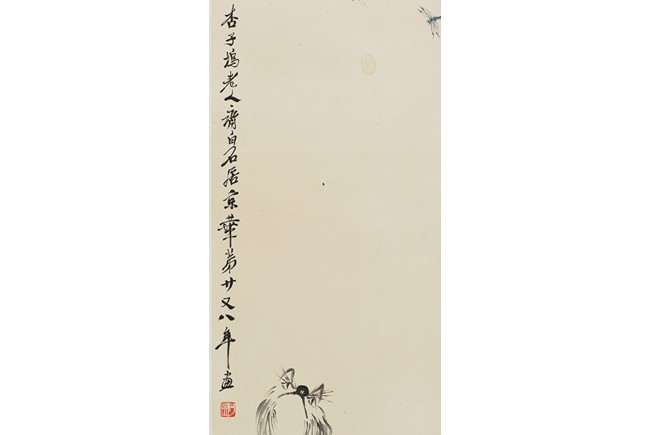 杏子塢老人齊白石居京華第廿又八年畫